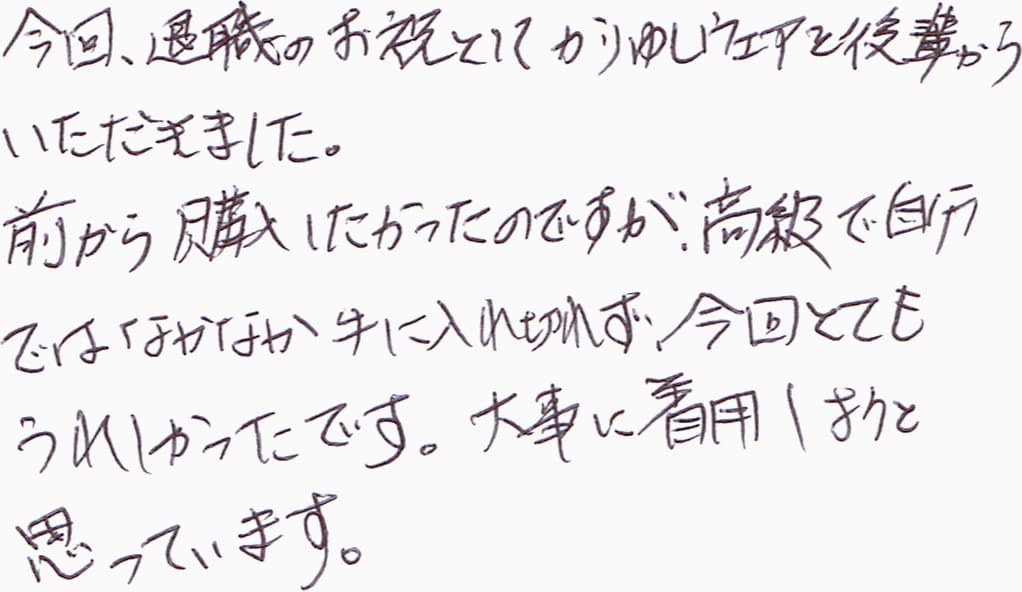 今回、退職のお祝としてかりゆしウェアを後輩から
いただきました。
前から購入したかったのですが、高級で自分
ではなかなか手に入れ切れず、今回とても
うれしかったです。大事に着用しようと
思っています。